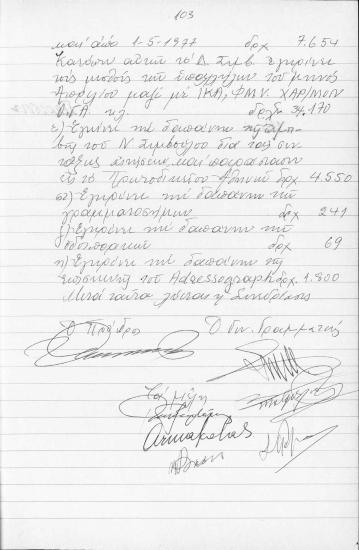 103
και από 1-5-1977 δρχ 7.654
Κατόπιν αυτού το Δ. Συμβ. εγκρίνει
τις μισθούς των υπαλλήλων του μηνός
Απριλίου μαζί με ΙΚΑ, ΦΜΥ. ΧΑΡ/ΜΟΝ
κ.λ. δρχ 34.170
ε) Εγκρίνει την δαπάνην
του Ν. Συμβούλου δια την σύν-
ταξιν αιτήσεως και παράστασιν
εις το Πρωτοδικείον Αθηνών δρχ. 4.550
στ) Εγκρίνει την δαπάνην των
γραμματοσήμων δρχ 241
ζ) Εγκρίνει την δαπάνην των
οδοιπορικών δρχ 69
η) Εγκρίνει την δαπάνην της
επισκευής του Adressograph δρχ. 1.800
Μετά ταύτα λύεται η Συνεδρίασις
Ο Πρόεδρος Ο Γεν. Γραμματεύς
Τα μέλη